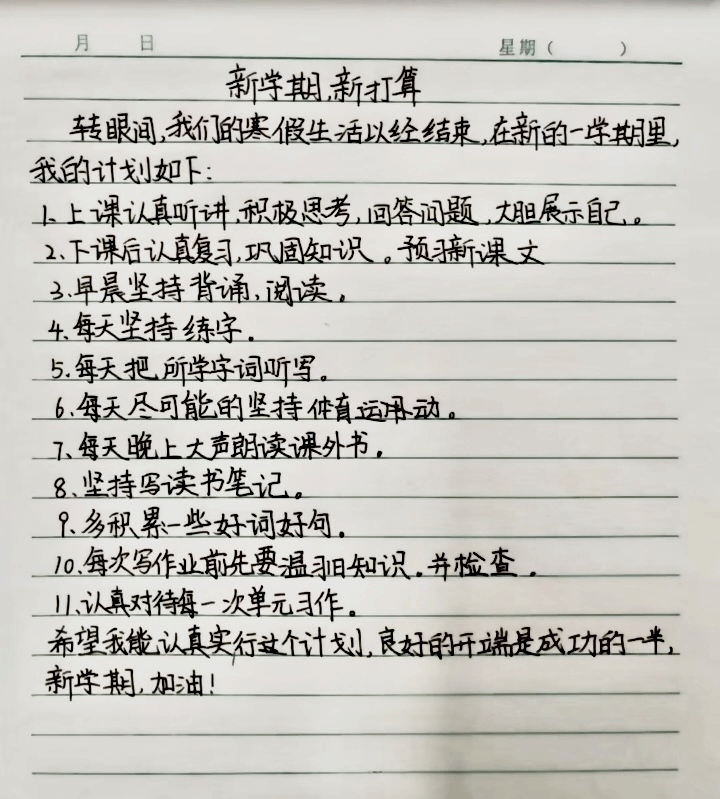 月 日 星期（ ）
新学期,新打算
转眼间,我们的寒假生活以经结束,在新的一学期里,
我的计划如下:
1、上课认真听讲,积极思考,回答问题,大胆展示自己。
2、下课后认真复习,巩固知识。预习新课文
3、早晨坚持背诵、阅读。
4、每天坚持练字。
5、每天把所学字词听写。
6、每天尽可能的坚持体育运动。
7、每天晚上大声朗读课外书。
8、坚持写读书笔记。
9、多积累一些好词好句。
10、每次写作业前先要温习旧知识。并检查。
11、认真对待每一次单元习作。
希望我能认真实行这个计划,良好的开端是成功的一半,
新学期,加油!